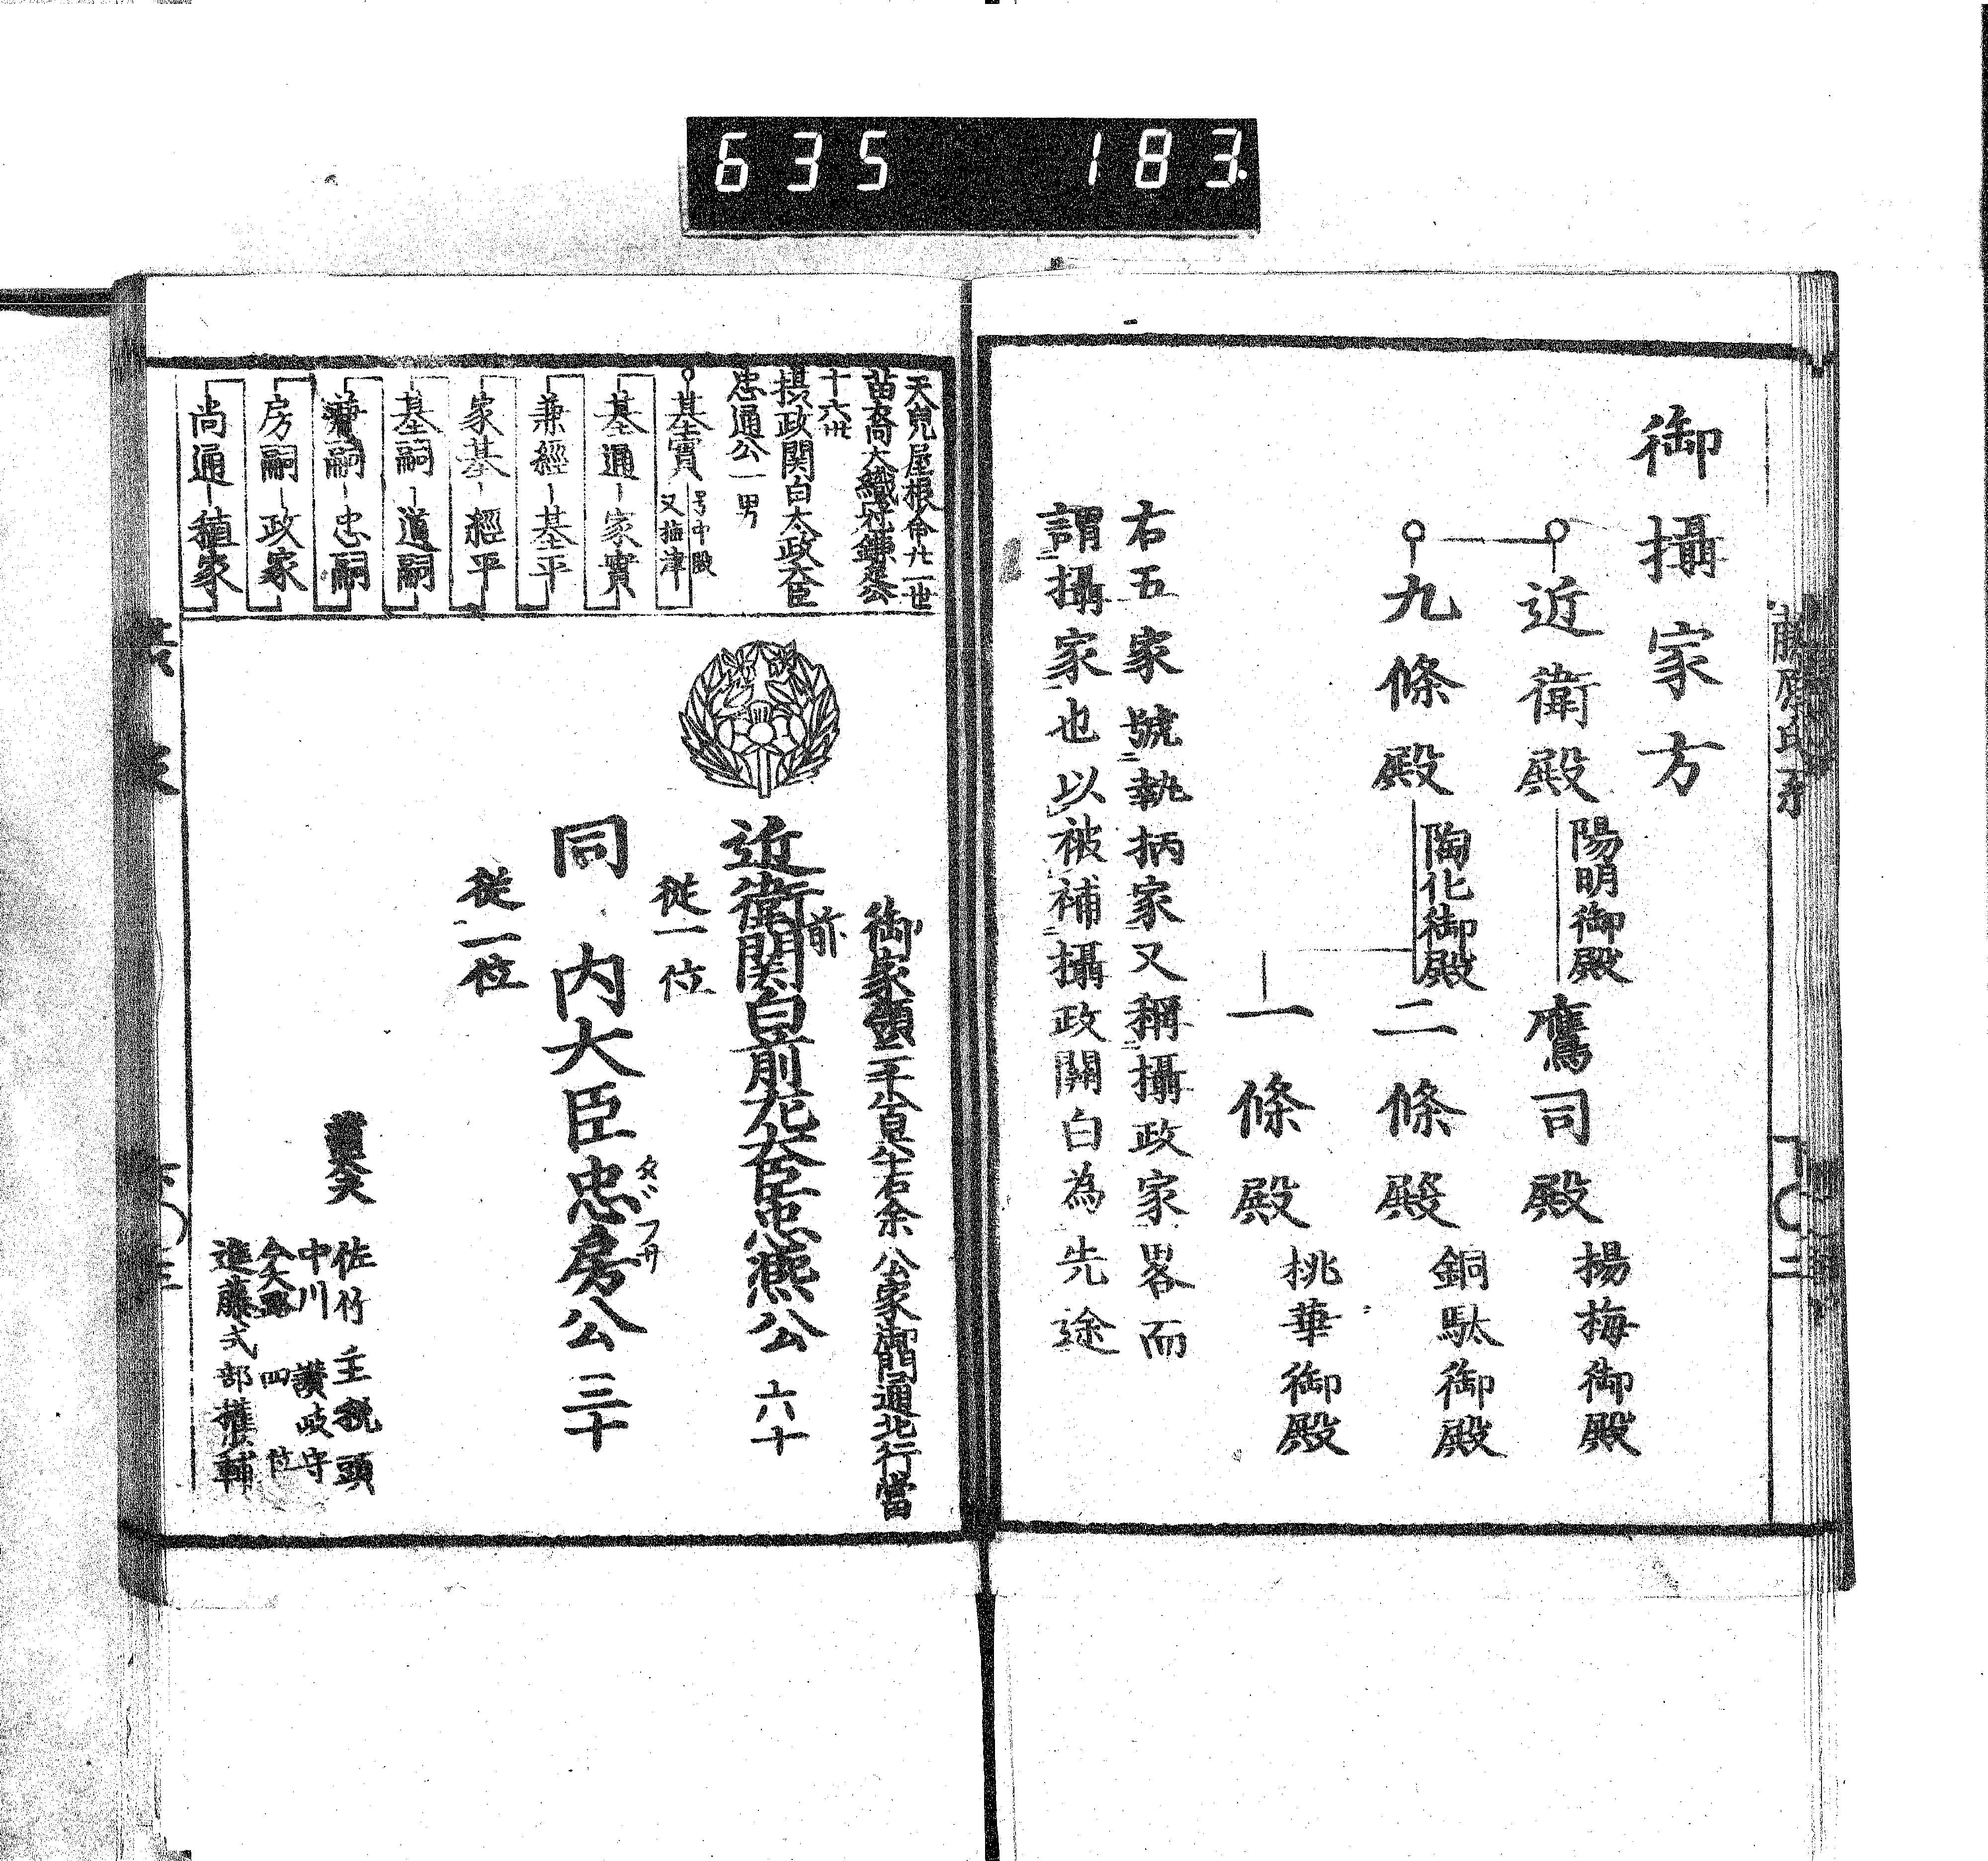 635 183
御攝家方
近衛殿 陽明御殿 鷹司殿 揚梅御殿
九條殿 陶化御殿 二條殿 銅駄御殿
一條殿 桃華御殿
右五家號執柄家又稱攝政家畧而
謂攝家也以被補攝政關白為先途
天兒屋根命九一世
苗裔大織冠鎌足公
十六世
摂政関白太政大臣
忠通公一男
基實 号中殿
又摂津
基通 家實
兼經 基平
家基 經平
基嗣 道嗣
兼嗣 忠嗣
房嗣 政家
尚通 植家
御家領二千八百
石余 公家御門通北行當
前
近衛関白前左大臣忠熈公 六十
従一位
同 内大臣忠房公 三十
タヾフサ
従一位
佐竹主税頭
中川讃岐守
今大路 四位
進藤式部権
輔